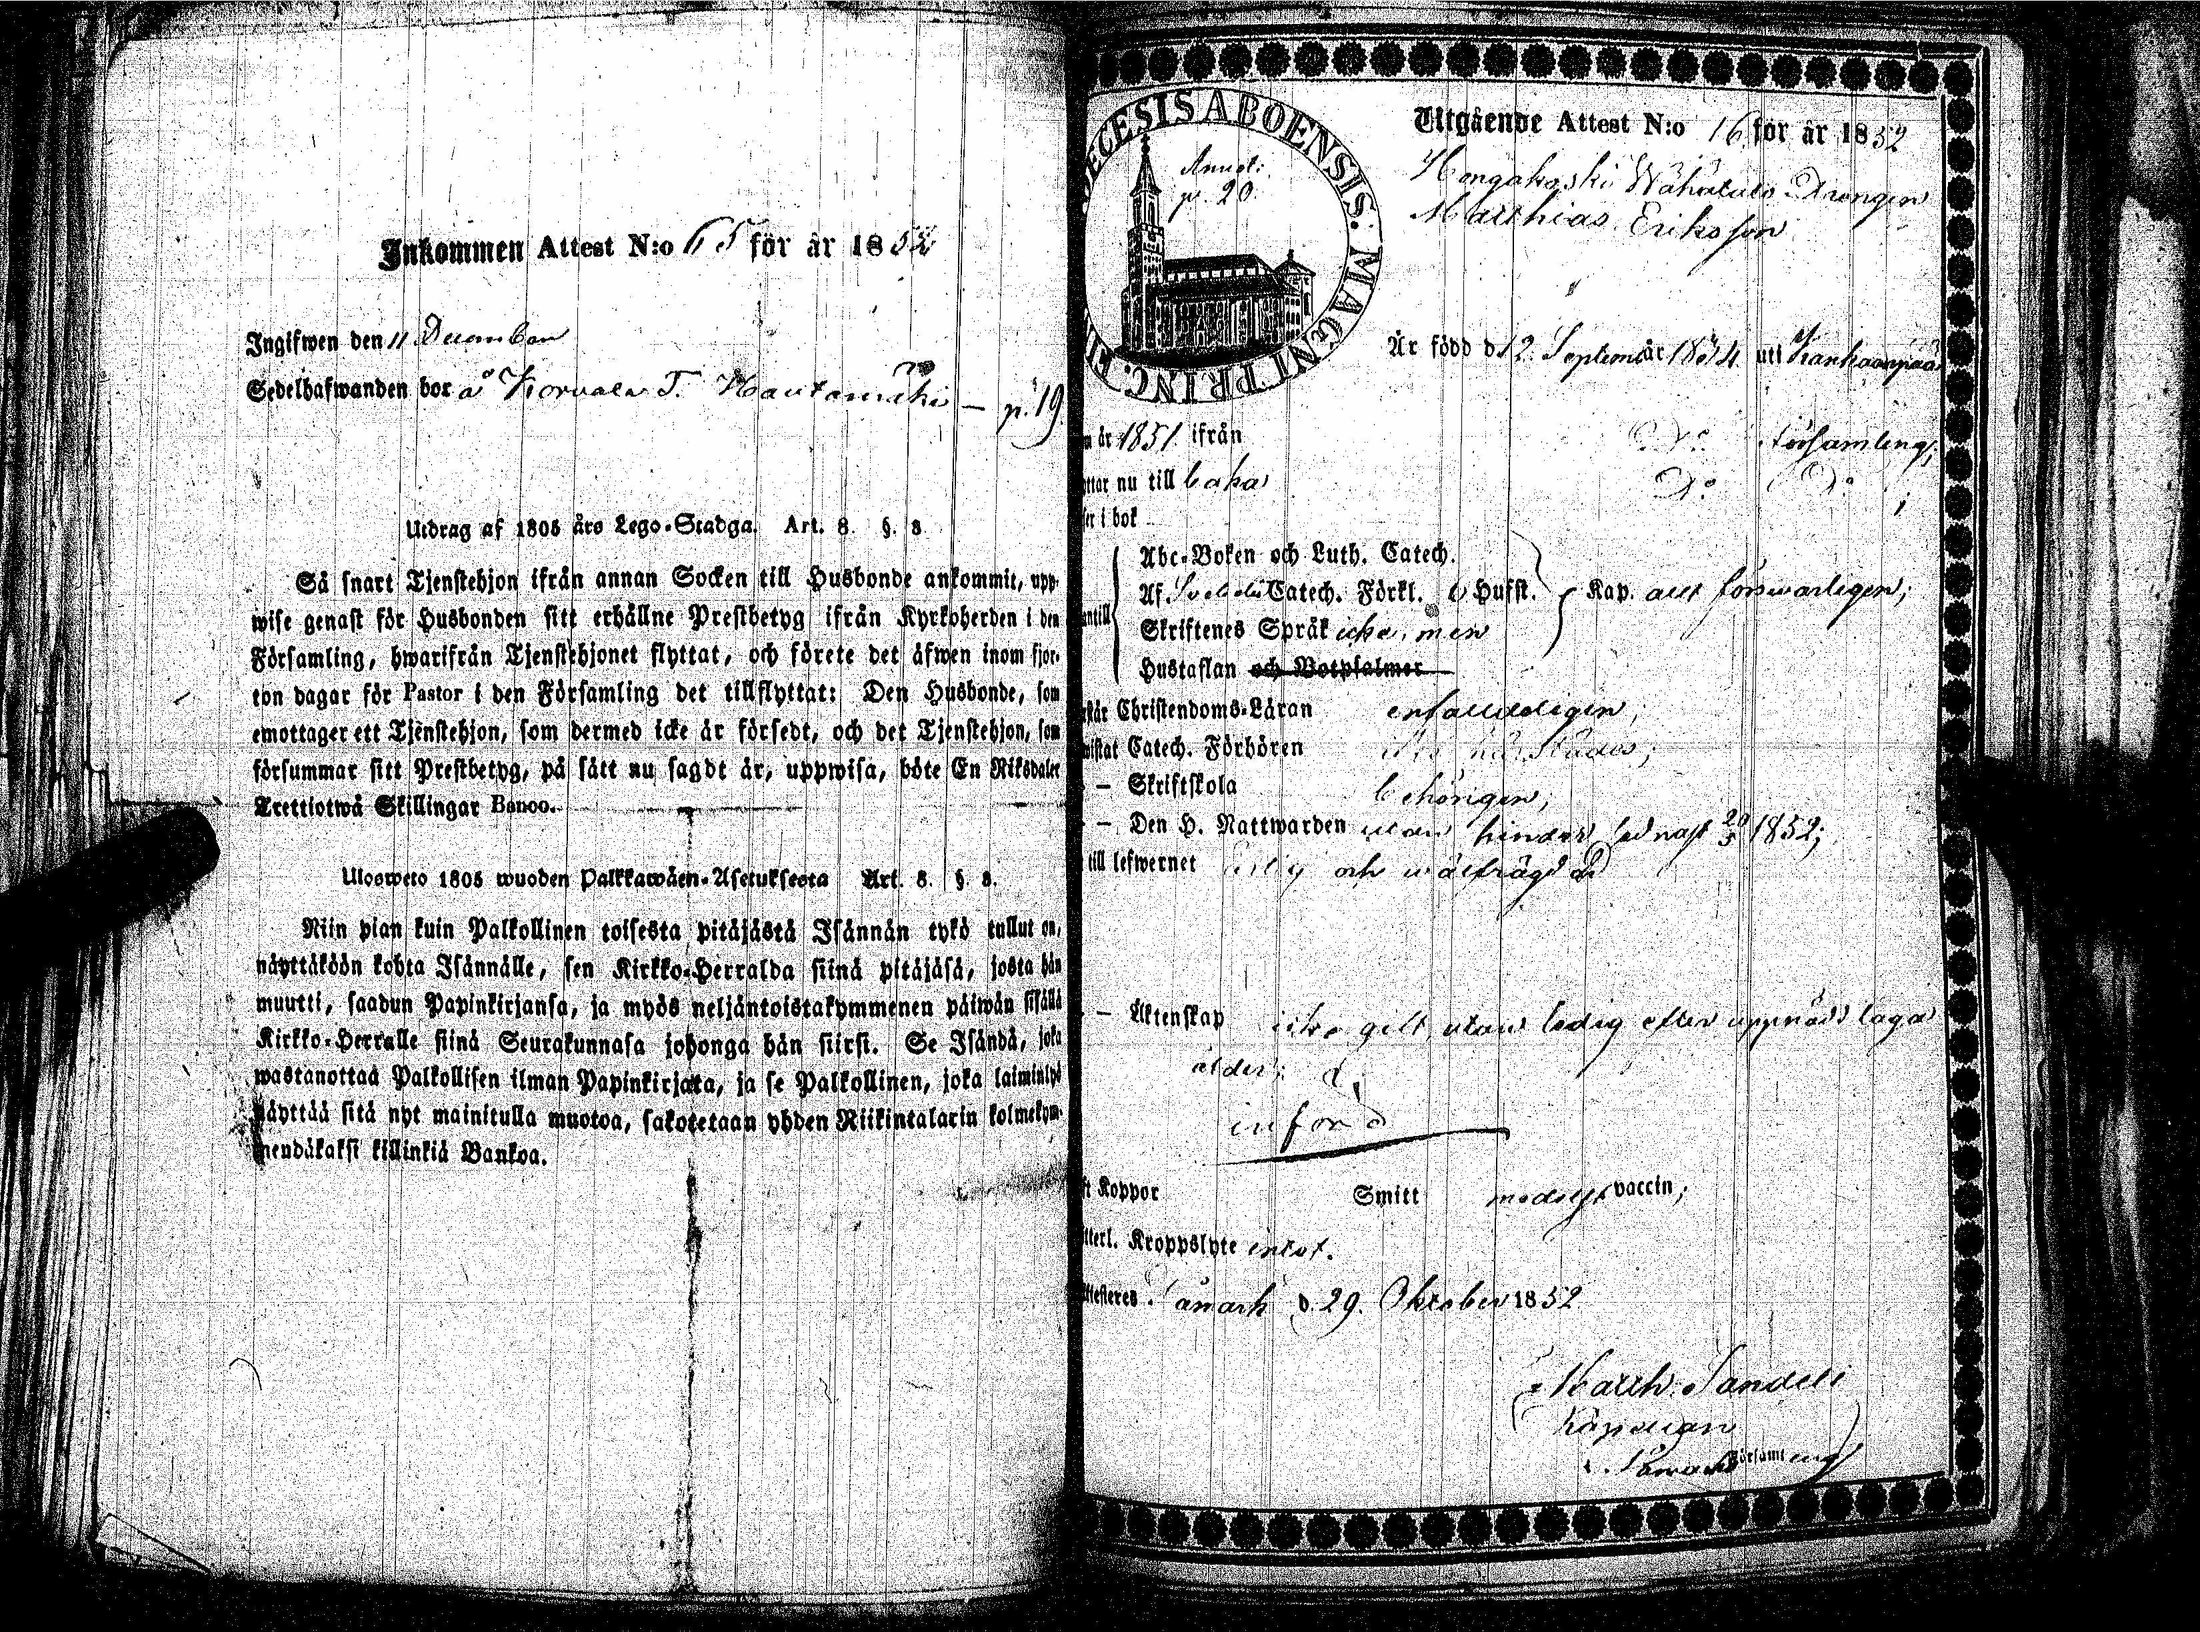 Inkommen Attest N:o 65 för år 1852
Ingifwen den 11 December
Sedelhafwanden bor å Korvala T. Hautamäki — p. 19.
Utdrag af 1805 års Lego-Stadga. Art. 8. §. 8.
Så snart Tjenstehjon ifrån annan Socken till Husbonde ankommit, upp-
wise genast för Husbonden sitt erhållne Prestbetyg ifrån Kyrkoherden i den
Församling, hwarifrån Tjenstehjonet flyttat, och förete det äfwen inom fjor-
ton dagar för Pastor i den Församling det tillflyttat: Den Husbonde, som
emottager ett Tjenstehjon, som dermed icke är försedt, och det Tjenstehjon, som
försummar sitt Prestbetyg, på sätt nu sagdt är, uppwisa, böte En Riksdaler
Trettiotwå Skillingar Banco.
Ulosweto 1805 wuoden Palkkawäen-Asetuksesta Art. 8. §. 8.
Niin pian kuin Palkollinen toisesta pitäjästä Isännän tykö tullut on,
näyttäköön kohta Isännälle, sen Kirkko-Herralda siinä pitäjäsä, josta hän
muutti, saadun Papinkirjansa, ja myös neljäntoistakymmenen päiwän sisällä
Kirkko-Herralle siinä Seurakunnasa johonga hän siirsi. Se Isändä, joka
wastanottaa Palkollisen ilman Papinkirjata, ja se Palkollinen, joka laiminlyö
näyttää sitä nyt mainitulla muotoa, sakotetaan yhden Riikintalarin kolmekym-
mendäkaksi killinkiä Bankoa.
ECESIS ABOENSIS. MAGNI PRINC. FI
Annot:
p. 20
Utgående Attest N:o 16 för år 1852
Hongakoski Wähätalo Drengen
Matthias Eriksson
Är född d. 12 September år 1834 uti Kankaanpää
år 1851 ifrån Do Församling;
nu till baka Do Do;
i bok
Abc-Boken och Luth. Catech.
Af Svebelii Catech. Förkl. 6 Hufst. Kap. allt förswarligen;
Skriftenes Språk icke, men
Hustaflan och Botpsalmer
Christendoms-Läran enfalldeligen;
Catech. Förhören
— Skriftskola behörigen;
— Den H. Nattwarden utan hinder sednast 20/5 1852;
till lefwernet ärlig och wälfrägdad
— Äktenskap icke gilt, utan ledig efter uppnådd laga
ålder;
införd
Koppor Smitt medelst vaccin;
Kroppslyte intet.
Påmark d. 29. Oktober 1852
Matth. Sandell
Kapellan
i Påmark Församling